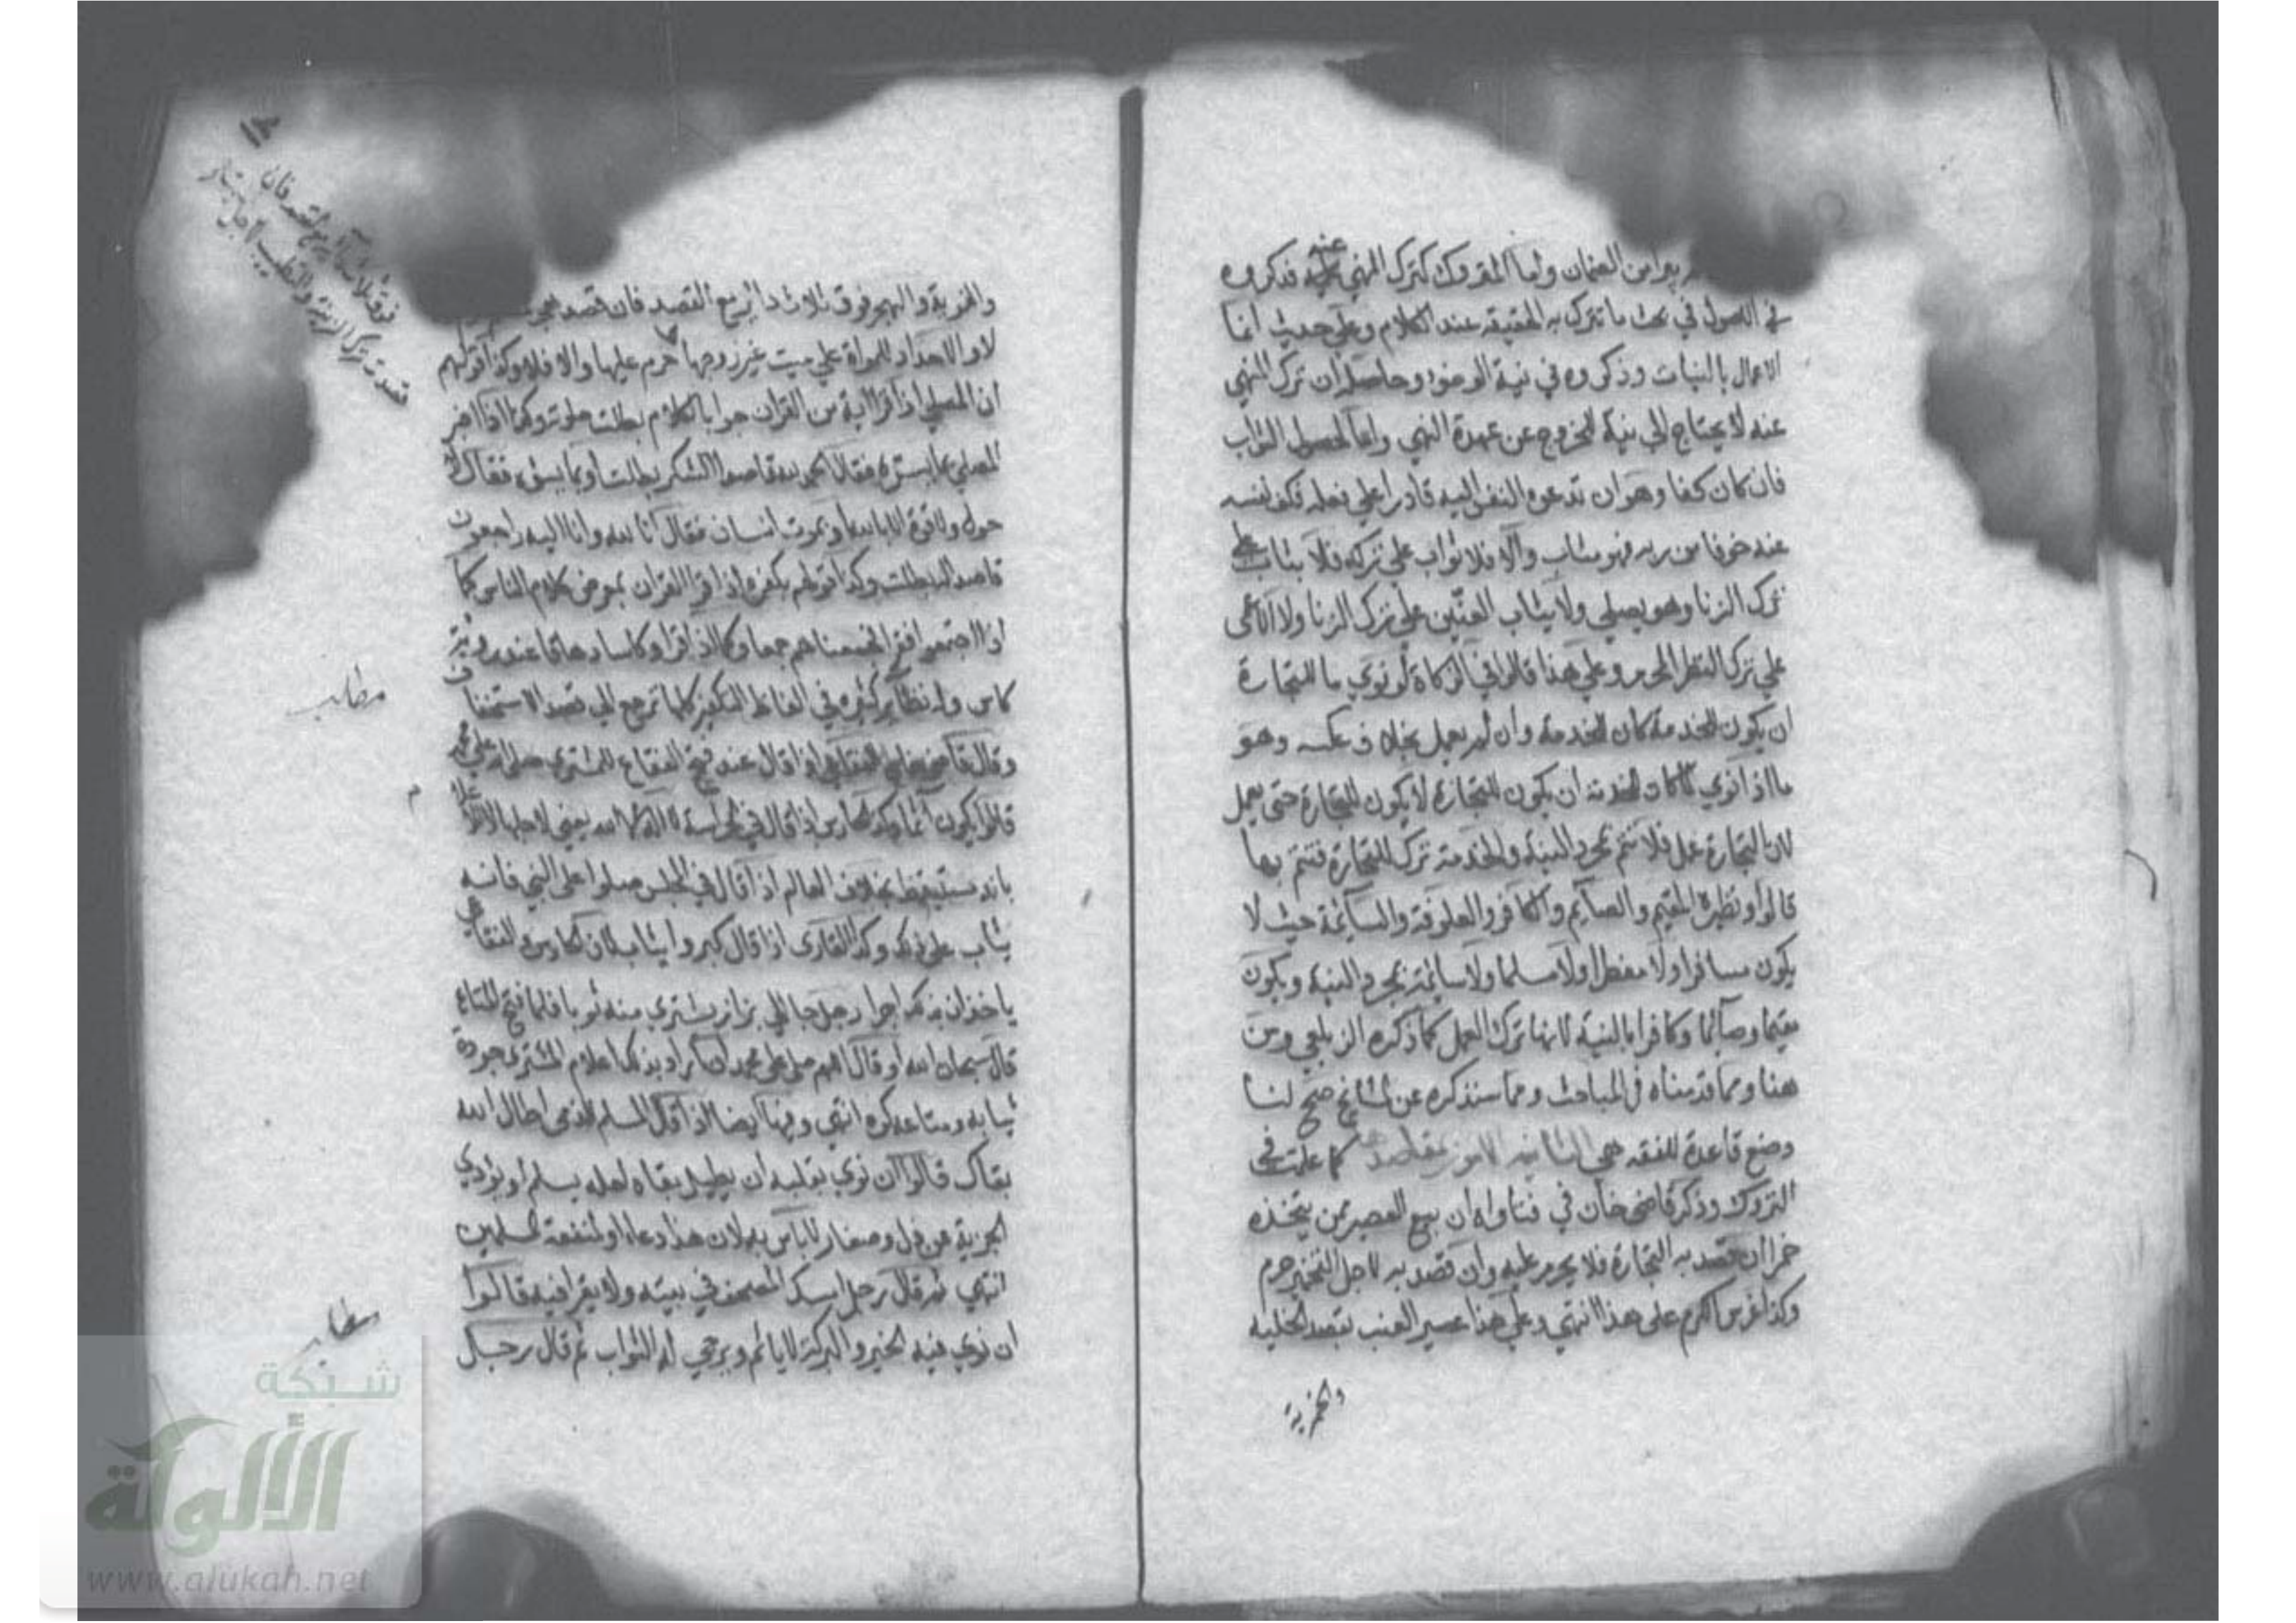 يبرأ من الضمان وأما المتروك كترك المنهي عنه فذكروه
في الاصول في بحث ما تترك به الحقيقة عند الكلام وعلى حديث انما
الاعمال بالنيات وذكروه في نية الوضوء وحاصله أن ترك المنهي
عنه لا يحتاج الى نية للخروج عن عهدة النهي واما لحصول الثواب
فان كان كفا وهو ان تدعوه النفس اليه قادرا على فعله فكف نفسه
عنه خوفا من ربه فهو مثاب والا فلا ثواب على تركه فلا يثاب على
ترك الزنا وهو يصلي ولا يثاب العنين على ترك الزنا ولا الاعمى
على ترك النظر المحرم وعلى هذا قالوا في الزكاة لو نوي ما للتجارة
ان يكون للخدمة كان للخدمة وان لم يعمل بخلاف عكسه وهو
ما اذا نوي فيما كان للخدمة ان يكون للتجارة لا يكون للتجارة حتى يعمل
لان التجارة عمل فلا تتم بمجرد النية والخدمة ترك للتجارة فتتم بها
قالوا ونظيره المقيم والصائم والكافر والعلوفة والسائمة حيث لا
يكون مسافرا ولا مفطرا ولا مسلما ولا سائمة بمجرد النية ويكون
مقيما وصائما وكافرا بالنية لانها ترك العمل كما ذكره الزيلعي ومن
هنا ومما قدمناه في المباحث ومما سنذكره عن المشايخ صح لنا
وضع قاعدة للفقه هي الثانية الامور بمقاصدها كما علمت في
التروك وذكر قاضي خان في فتاواه ان بيع العصير ممن يتخذه
خمرا ان قصد به التجارة فلا يحرم عليه وان قصد به لاجل التخمير حرم
وكذا غرس الكرم على هذا انتهي وعلى هذا عصير العنب بقصد الخلية
والخمرية
والخمرية والهجر فوق ثلاث دائر مع القصد فان قصد هجر
لا والاحداد للمراة على ميت غير زوجها حرم عليها والا فلا وكذا قولهم
ان المصلي اذا قرا اية من القران جوابا لكلام بطلت صلوته وكذا اذا اخبر
المصلي بما يسره فقال الحمد لله قاصدا الشكر بطلت او بما يسؤه فقال لا
حول ولا قوة الا بالله او بموت انسان فقال انا لله وانا اليه راجعون
قاصدا له بطلت وكذا قولهم بكفره اذا قرا القران بمعرض كلام الناس كما
اذا اجتمعوا فقرا فجمعناهم جمعا وكذا اذا قرا وكاسا دهاقا عند رؤية
كاس وله نظائر كثيرة في الفاظ التكفير كلها ترجع الى قصد الاستخفاف
وقال قاضي خان الفقاعي اذا قال عند فتح الفقاع للمشتري صلى الله على محمد
قالوا يكون اثما وكذا الحارس اذا قال في الحراسة لا اله الا الله يعني لاجل الاعلام
بانه مستيقظ بخلاف العالم اذا قال في المجلس صلوا على النبي فانه
يثاب على ذلك وكذا الغازي اذا قال كبروا يثاب لان الحارس والفقاعي
ياخذان بذلك اجرا رجل جا الى بزاز ليشتري منه ثوبا فلما فتح المتاع
قال سبحان الله او قال اللهم صل على محمد ان اراد بذلك اعلام المشتري جودة
ثيابه ومتاعه كره انتهي وفيها ايضا اذا قال المسلم للذمي اطال الله
بقاك قالوا ان نوي بقلبه ان يطيل بقاه لعله يسلم او يؤدي
الجزية عن ذل وصغار لا باس به لان هذا دعاء له او لمنفعة المسلمين
انتهي ثم قال رجل امسك المصحف في بيته ولا يقرا فيه قالوا
ان نوي فيه الخير والبركة لا ياثم ويرجي له الثواب ثم قال رجل
فوق ثلاثة دائر مع القصد فان
قصدت ترك الزينة والتطيب لاجل
مطلب
مطلب
شبكة
الألوكة
www.alukah.net